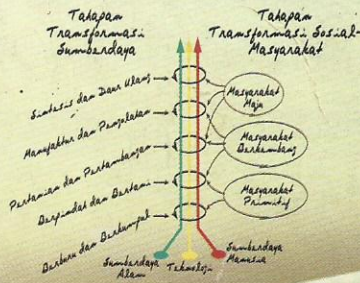 Tahapan
Transformasi
Sumberdaya
Tahapan
Transformasi Sosial-
Masyarakat
Sintesis dan Daur Ulang
Manufaktur dan Pengolahan
Pertanian dan Pertambangan
Berpindah dan Bertani
Berburu dan Berkumpul
Masyarakat
Maju
Masyarakat
Berkembang
Masyarakat
Primitif
Sumberdaya
Alam
Teknologi
Sumberdaya
Manusia